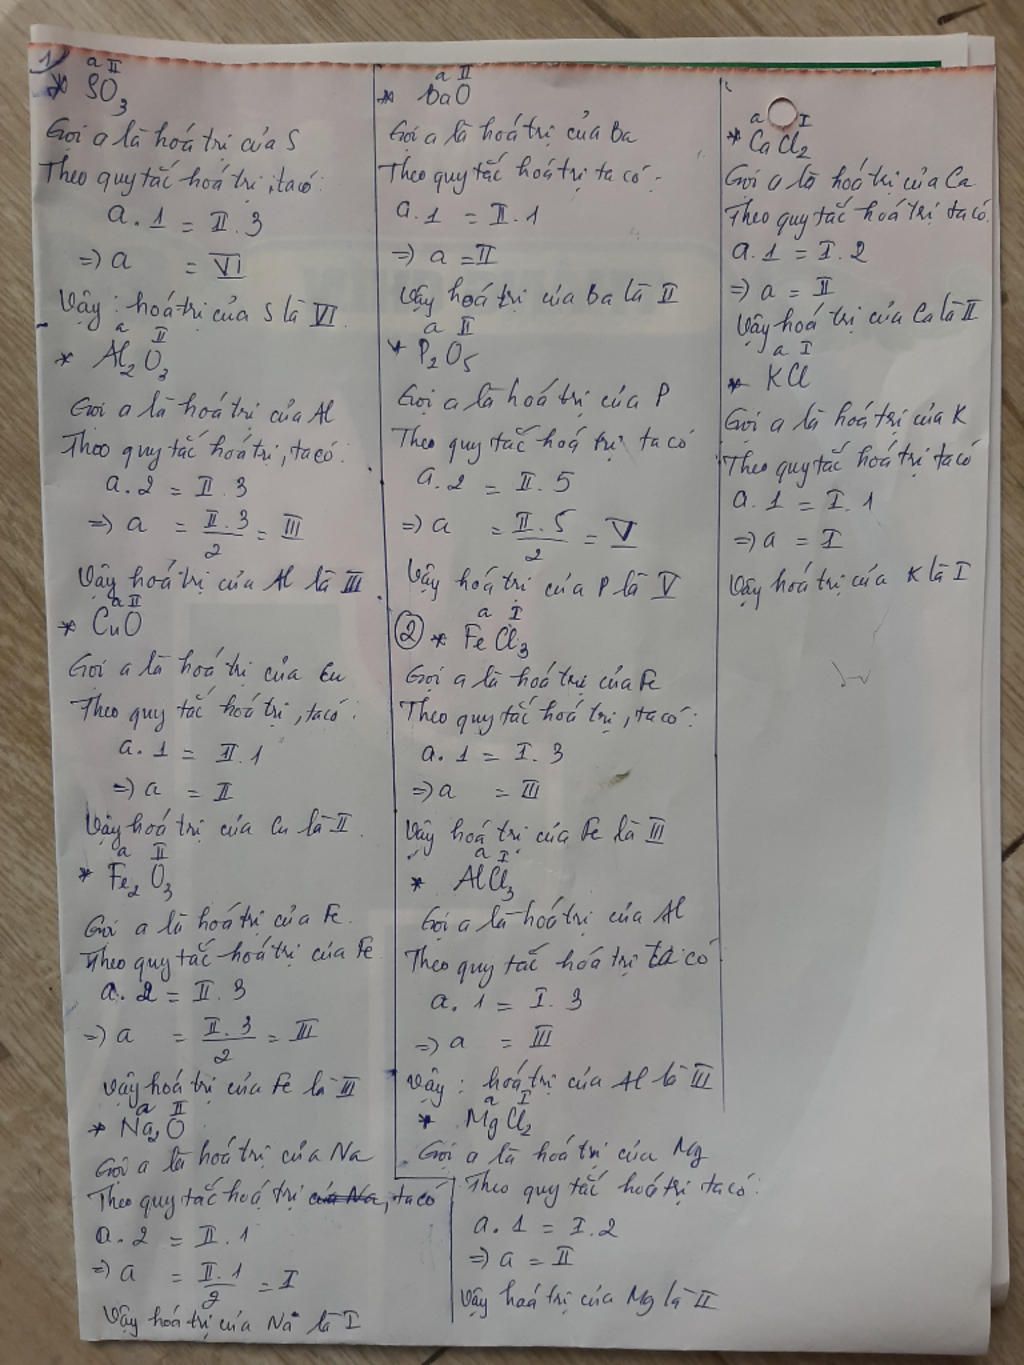 1) a II
* SO3
Gọi a là hoá trị của S
Theo quy tắc hoá trị, ta có:
a.1 = II.3
=> a = VI
Vậy: hoá trị của S là VI
a II
* Al2O3
Gọi a là hoá trị của Al
Theo quy tắc hoá trị, ta có:
a.2 = II.3
=> a = II.3/2 = III
Vậy hoá trị của Al là III
a II
* CuO
Gọi a là hoá trị của Cu
Theo quy tắc hoá trị, ta có:
a.1 = II.1
=> a = II
Vậy hoá trị của Cu là II.
a II
* Fe2O3
Gọi a là hoá trị của Fe.
Theo quy tắc hoá trị của Fe
a.2 = II.3
=> a = II.3/2 = III
Vậy hoá trị của Fe là III
a II
* Na2O
Gọi a là hoá trị của Na
Theo quy tắc hoá trị của Na, ta có
a.2 = II.1
=> a = II.1/2 = I
Vậy hoá trị của Na là I
a II
* BaO
Gọi a là hoá trị của Ba
Theo quy tắc hoá trị ta có:
a.1 = II.1
=> a = II
Vậy hoá trị của Ba là II
a II
* P2O5
Gọi a là hoá trị của P
Theo quy tắc hoá trị ta có
a.2 = II.5
=> a = II.5/2 = V
Vậy hoá trị của P là V
a I
2 * FeCl3
Gọi a là hoá trị của Fe
Theo quy tắc hoá trị, ta có:
a.1 = I.3
=> a = III
Vậy hoá trị của Fe là III
a I
* AlCl3
Gọi a là hoá trị của Al
Theo quy tắc hoá trị ta có
a.1 = I.3
=> a = III
Vậy: hoá trị của Al là III
a I
* MgCl2
Gọi a là hoá trị của Mg
Theo quy tắc hoá trị ta có:
a.1 = I.2
=> a = II
Vậy hoá trị của Mg là II
a I
* CaCl2
Gọi a là hoá trị của Ca
Theo quy tắc hoá trị ta có
a.1 = I.2
=> a = II
Vậy hoá trị của Ca là II
a I
* KCl
Gọi a là hoá trị của K
Theo quy tắc hoá trị ta có
a.1 = I.1
=> a = I
Vậy hoá trị của K là I